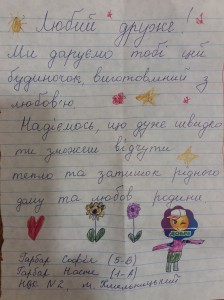 Любий друже!
Ми даруємо тобі цей
будиночок, виготовлений з
любов'ю
Надіємось, що дуже швидко
ти зможеш відчути
тепло та затишок рідного
дому та любов родини
Гарбар Софія (5-В)
Гарбар Настя (1-А)
НВО №2, м. Хмельницький